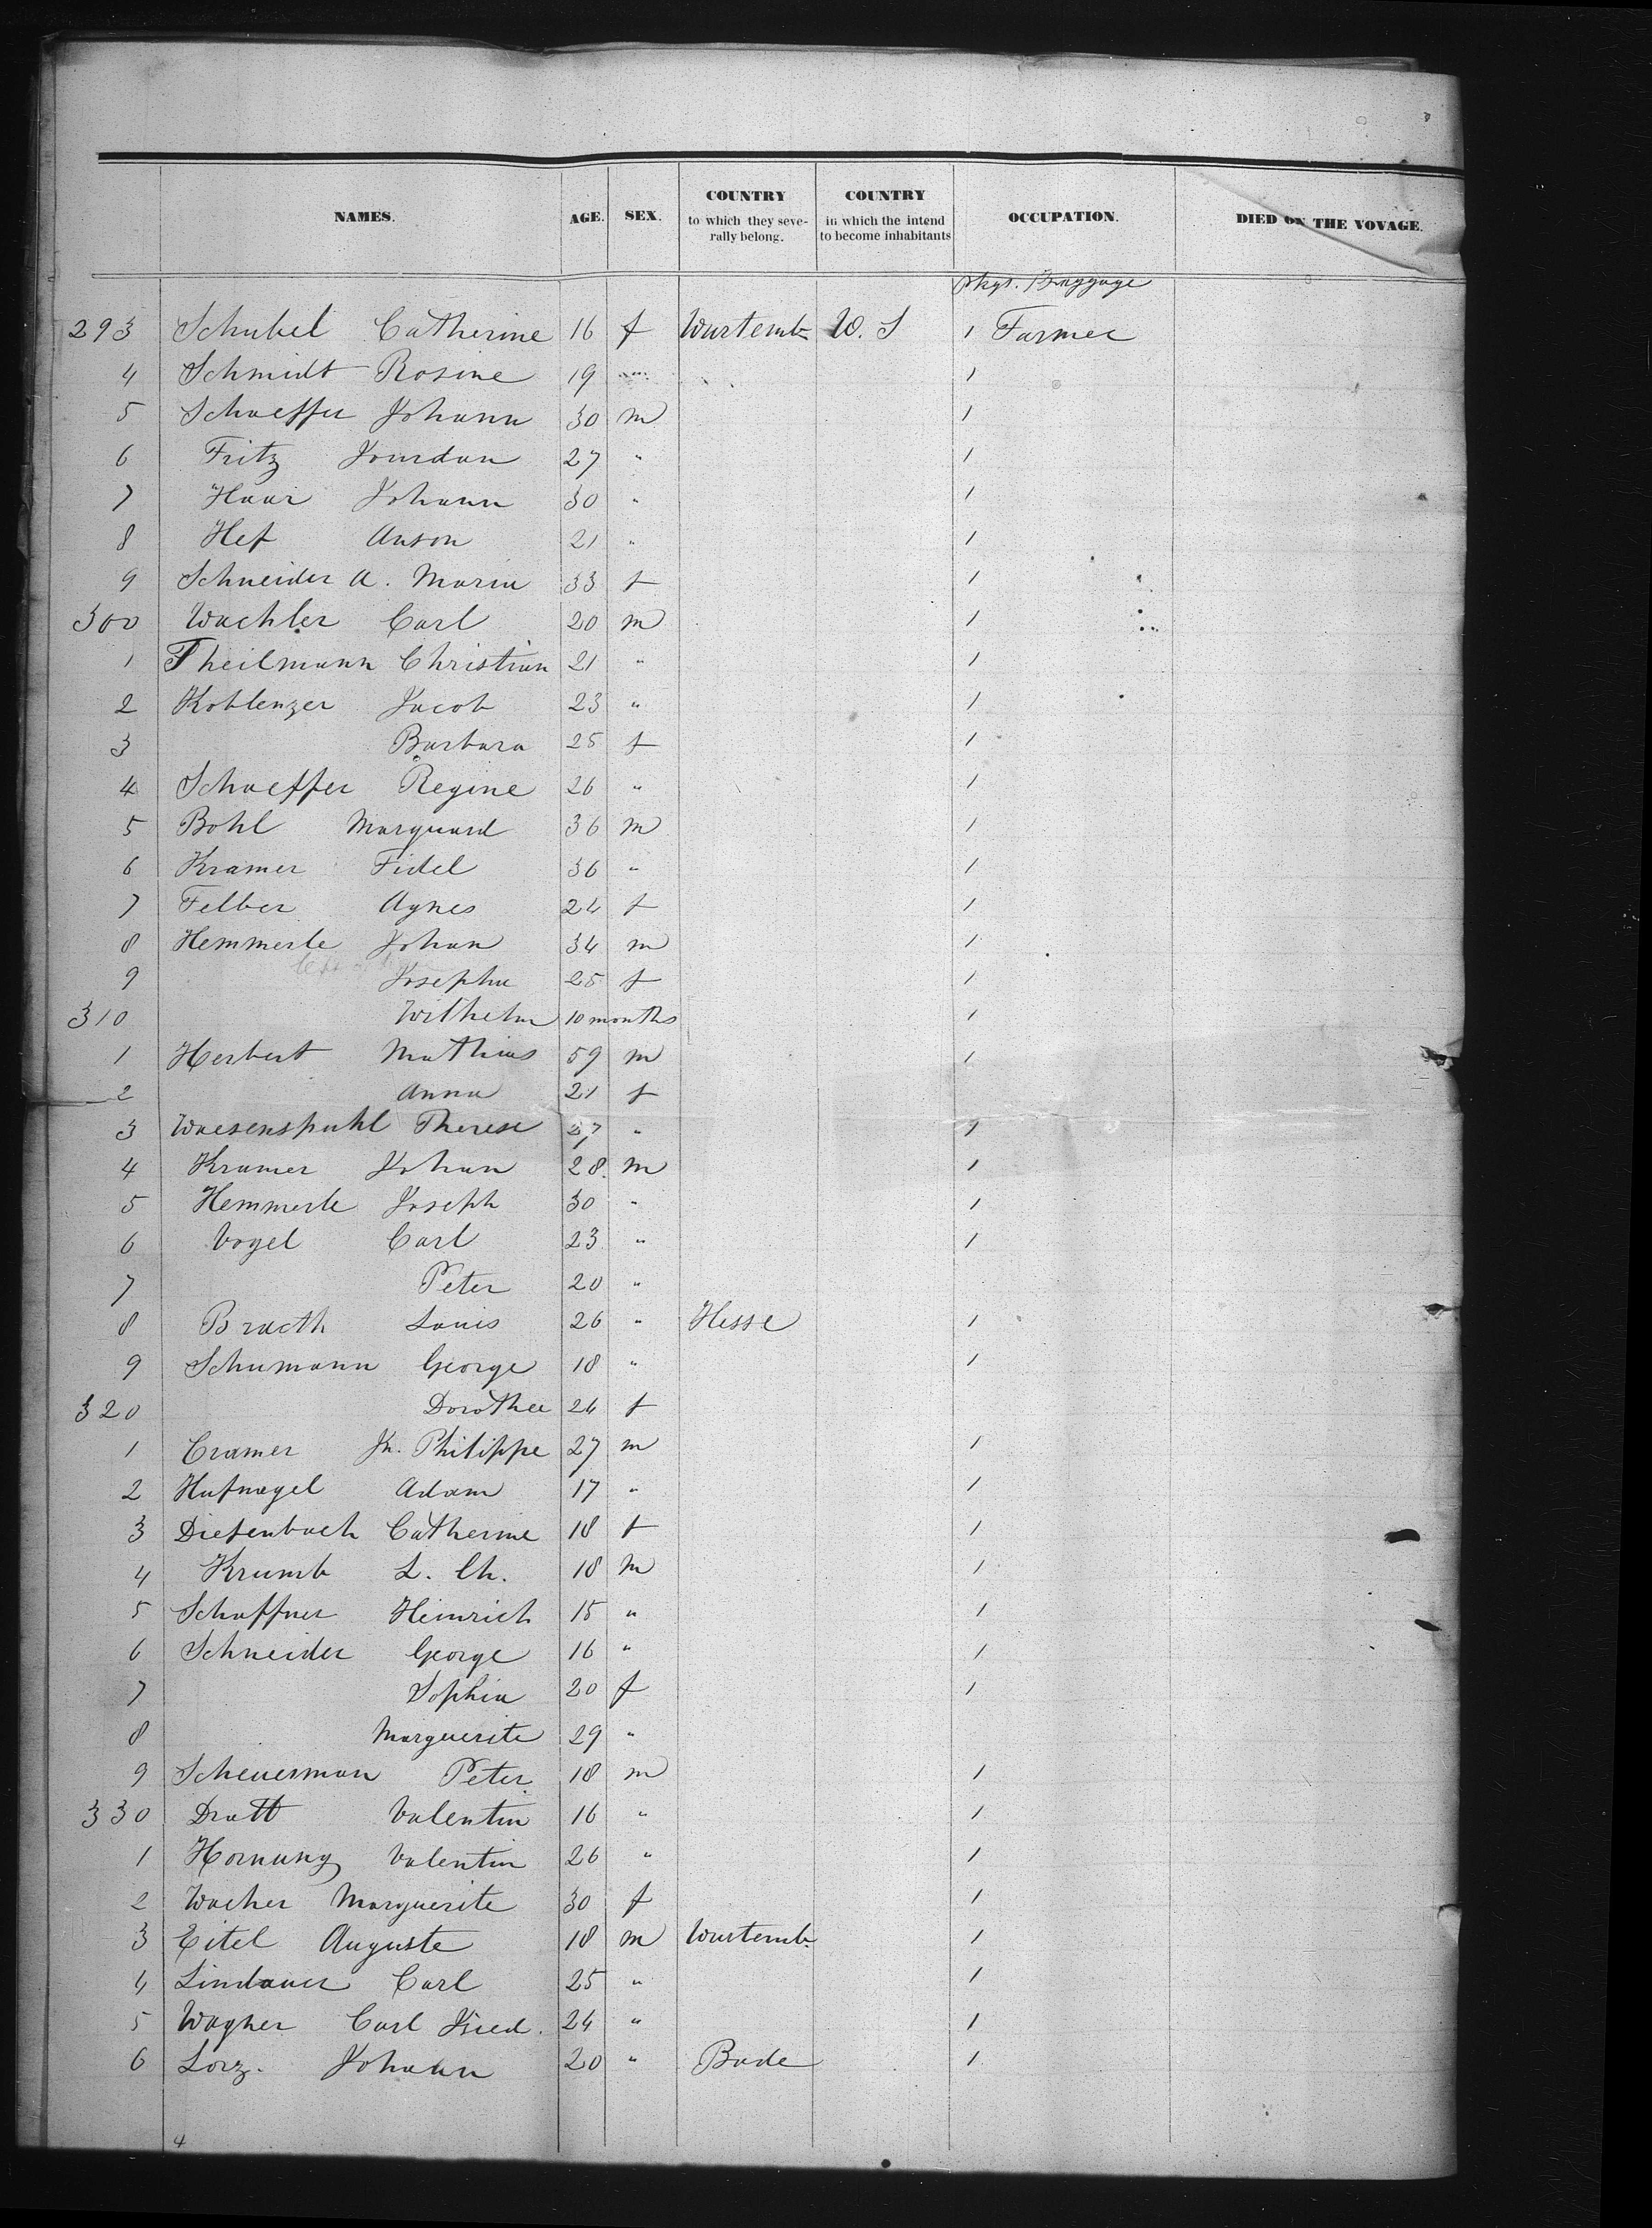 NAMES. AGE. SEX. COUNTRY to which they severally belong. COUNTRY in which the intend to become inhabitants OCCUPATION. DIED ON THE VOYAGE.
pkgs. Baggage
293 Schubel Catherine 16 f Wurtemb U. S 1 Farmer
4 Schmidt Rosine 19 " 1
5 Schaeffer Johann 30 m 1
6 Fritz Jourdan 27 " 1
7 Haar Johann 30 " 1
8 Hef Anson 21 " 1
9 Schneider A. Maria 33 f 1
300 Wachler Carl 20 m 1
1 Theilmann Christian 21 " 1
2 Koblenzer Jacob 23 " 1
3 Barbara 25 f 1
4 Schaeffer Regine 26 " 1
5 Bohl Marquard 36 m 1
6 Kramer Fidel 36 " 1
7 Felber Agnes 24 f 1
8 Hemmerle Johan 34 m 1
9 Josepha 25 f 1
310 Wilhelm 10 months 1
1 Herbert Mathias 59 m 1
2 Anna 21 f
3 Waesenspuhl Therese 27 " 1
4 Kramer Johan 28. m 1
5 Hemmerle Joseph 30 " 1
6 Vogel Carl 23 " 1
7 Peter 20 "
8 Bracth Louis 26 " Hesse 1
9 Schumann George 18 " 1
320 Dorothee 24 f
1 Cramer Jn. Philippe 27 m 1
2 Hufnagel Adam 17 " 1
3 Diefenbach Catherine 18 f 1
4 Krumb L. Ch. 18 m 1
5 Schaffner Heinrich 15 " 1
6 Schneider George 16 " 1
7 Sophia 20 f 1
8 Marguerite 29 "
9 Scheuerman Peter 18 m 1
330 Dratt Valentin 16 " 1
1 Hornung Valentin 26 " 1
2 Wacher Marguerite 30 f 1
3 Eitel Auguste 18 m Wurtemb. 1
4 Lindauer Carl 25 " 1
5 Wagner Carl Fried. 24 " 1
6 Lorz. Johann 20 " Bade 1
4